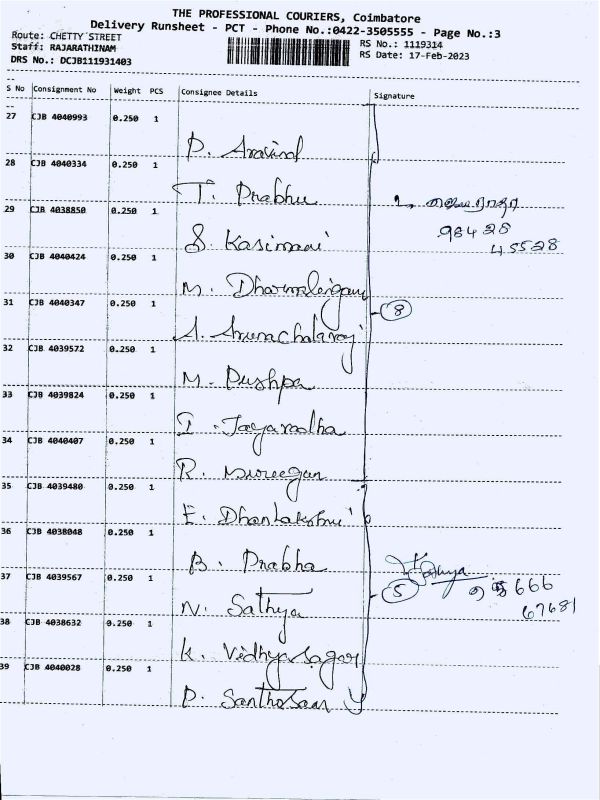 THE PROFESSIONAL COURIERS, Coimbatore
Delivery Runsheet - PCT - Phone No.:0422-3505555 - Page No.:3
Route: CHETTY STREET
Staff: RAJARATHINAM
DRS No.: DCJB111931403
RS No.: 1119314
RS Date: 17-Feb-2023
S No Consignment No Weight PCS Consignee Details Signature
27 CJB 4040993 0.250 1
P. Aravind
28 CJB 4040334 0.250 1
T. Prabhu
29 CJB 4038850 0.250 1
98428
S. Kasimani
45528
30 CJB 4040424 0.250 1
M. Dharmalingam
8
31 CJB 4040347 0.250 1
A. Arunachalaraj
32 CJB 4039572 0.250 1
M. Pushpa
33 CJB 4039824 0.250 1
I. Jayaradha
34 CJB 4040407 0.250 1
R. Mureegan
35 CJB 4039480 0.250 1
E. Dhanlakshmi
36 CJB 4038048 0.250 1
B. Prabha
37 CJB 4039567 0.250 1
5
666
N. Sathya
67681
38 CJB 4038632 0.250 1
K. Vidhya sagar
39 CJB 4040028 0.250 1
P. Santhosam